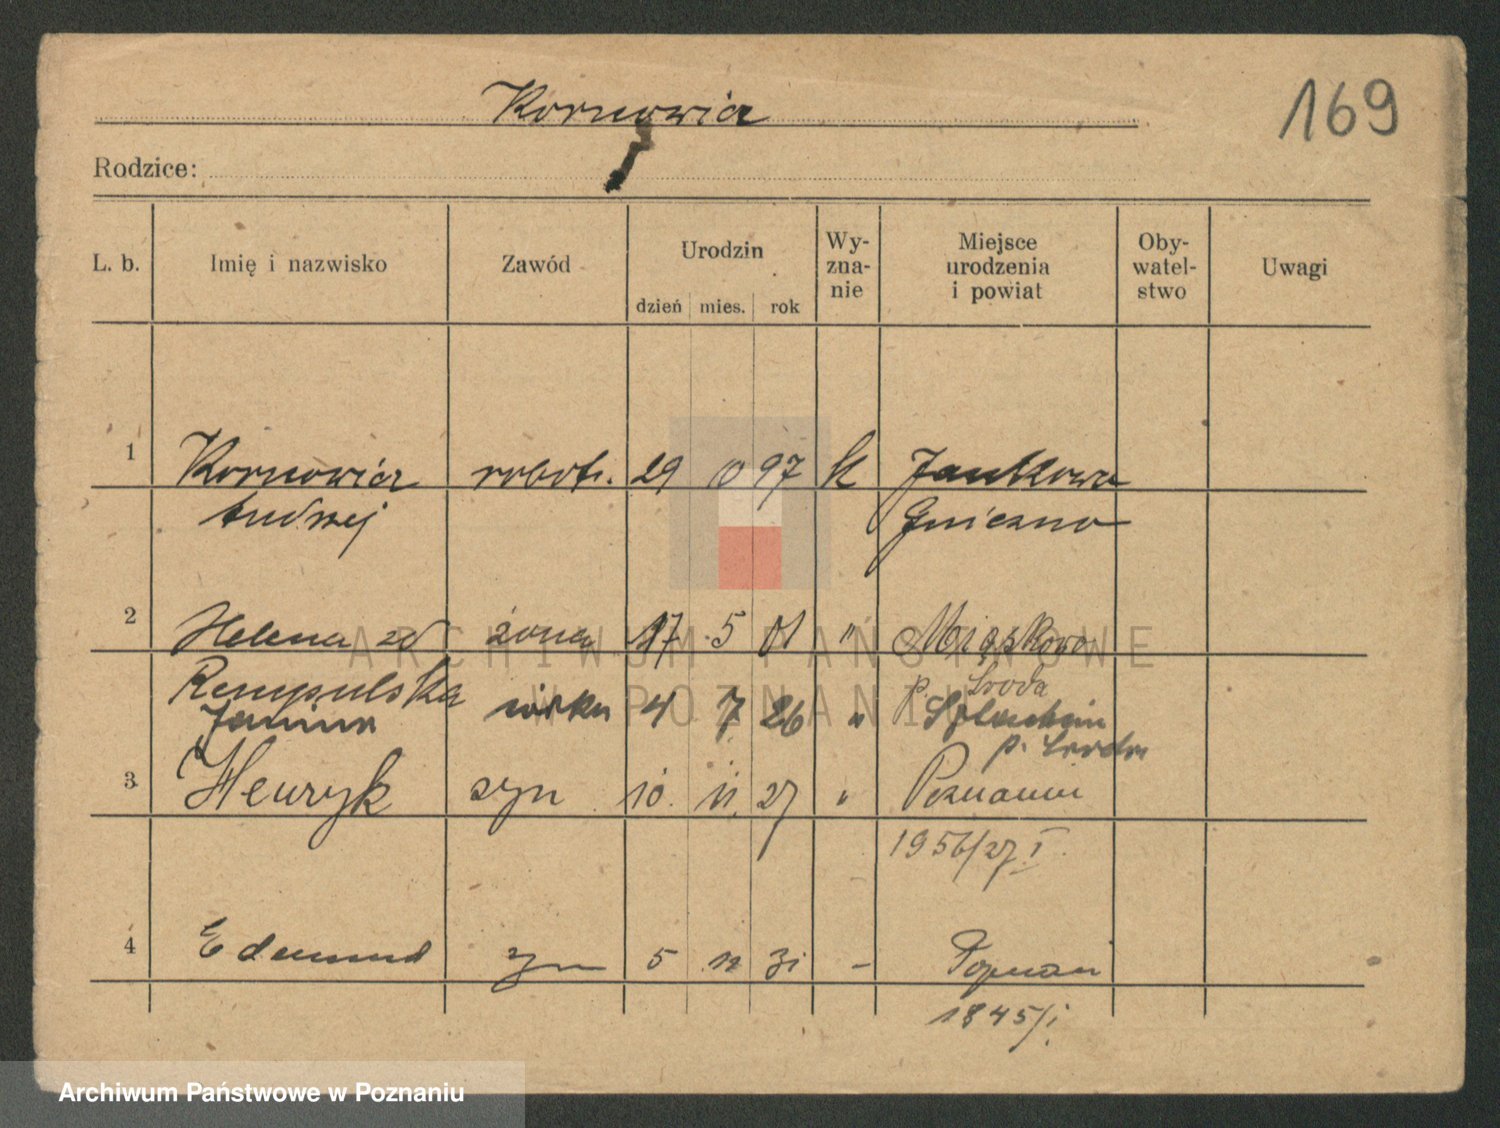 Kornowicz
169
Rodzice:
L. b. Imię i nazwisko Zawód Urodzin dzień mies. rok Wy-zna-nie Miejsce urodzenia i powiat Oby-watel-stwo Uwagi
1 Kornowicz robotn. 29 10 97 k Jankowo
Andrzej Gniezno
2 Helena zd żona 17 5 01 " Miąskowo
p. Środa
Rempulska
Janina córka 4 7 26 "
p. Środa
3 Henryk syn 10. 11. 27 " Poznaniu
1956/27 I
4 Edmund syn 5 12 31 – Poznań
1845/I
ARCHIWUM PAŃSTWOWE
W POZNANIU
Archiwum Państwowe w Poznaniu